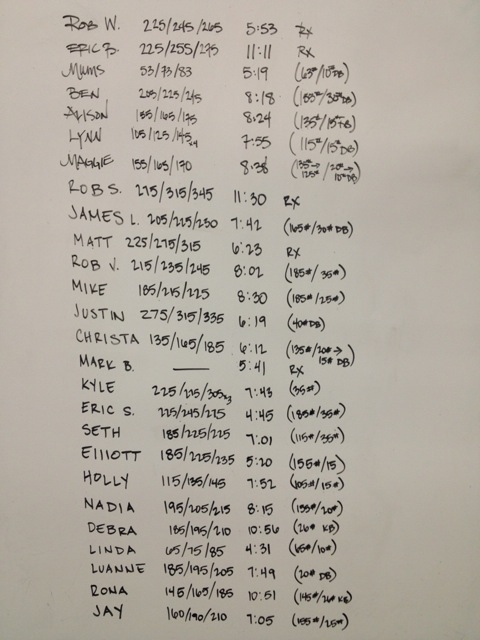 ROB W. 225/245/265 5:53 RX
ERIC B. 225/255/275 11:11 RX
MUMS 53/73/83 5:19 (63#/10#DB)
BEN 205/225/245 8:18 (155#/30#DB)
ALISON 155/165/175 8:24 (135#/15#DB)
LYNN 105/125/145x4 7:55 (115#/15#DB)
MAGGIE 155/165/170 8:38 (135#→125#/20#→10#DB)
ROB S. 275/315/345 11:30 RX
JAMES L. 205/225/230 7:42 (165#/30# DB)
MATT 225/275/315 6:23 RX
ROB V. 215/235/245 8:02 (185#/35#)
MIKE 185/215/225 8:30 (185#/25#)
JUSTIN 275/315/335 6:19 (40#DB)
CHRISTA 135/165/185 6:12 (135#/20#→15# DB)
MARK B. — 5:41 RX
KYLE 225/275/305x3 7:43 (35#)
ERIC S. 225/245/275 4:45 (185#/35#)
SETH 185/225/225 7:01 (115#/35#)
Elliott 185/225/235 5:20 (155#/15)
HOLLY 115/135/145 7:52 (105#/15#)
NADIA 195/205/215 8:15 (135#/20#)
DEBRA 185/195/210 10:56 (26# KB)
LINDA 65/75/85 4:31 (65#/10#)
LUANNE 185/195/205 7:49 (20# DB)
RONA 145/165/185 10:51 (145#/26# KB)
JAY 160/190/210 7:05 (155#/25#)